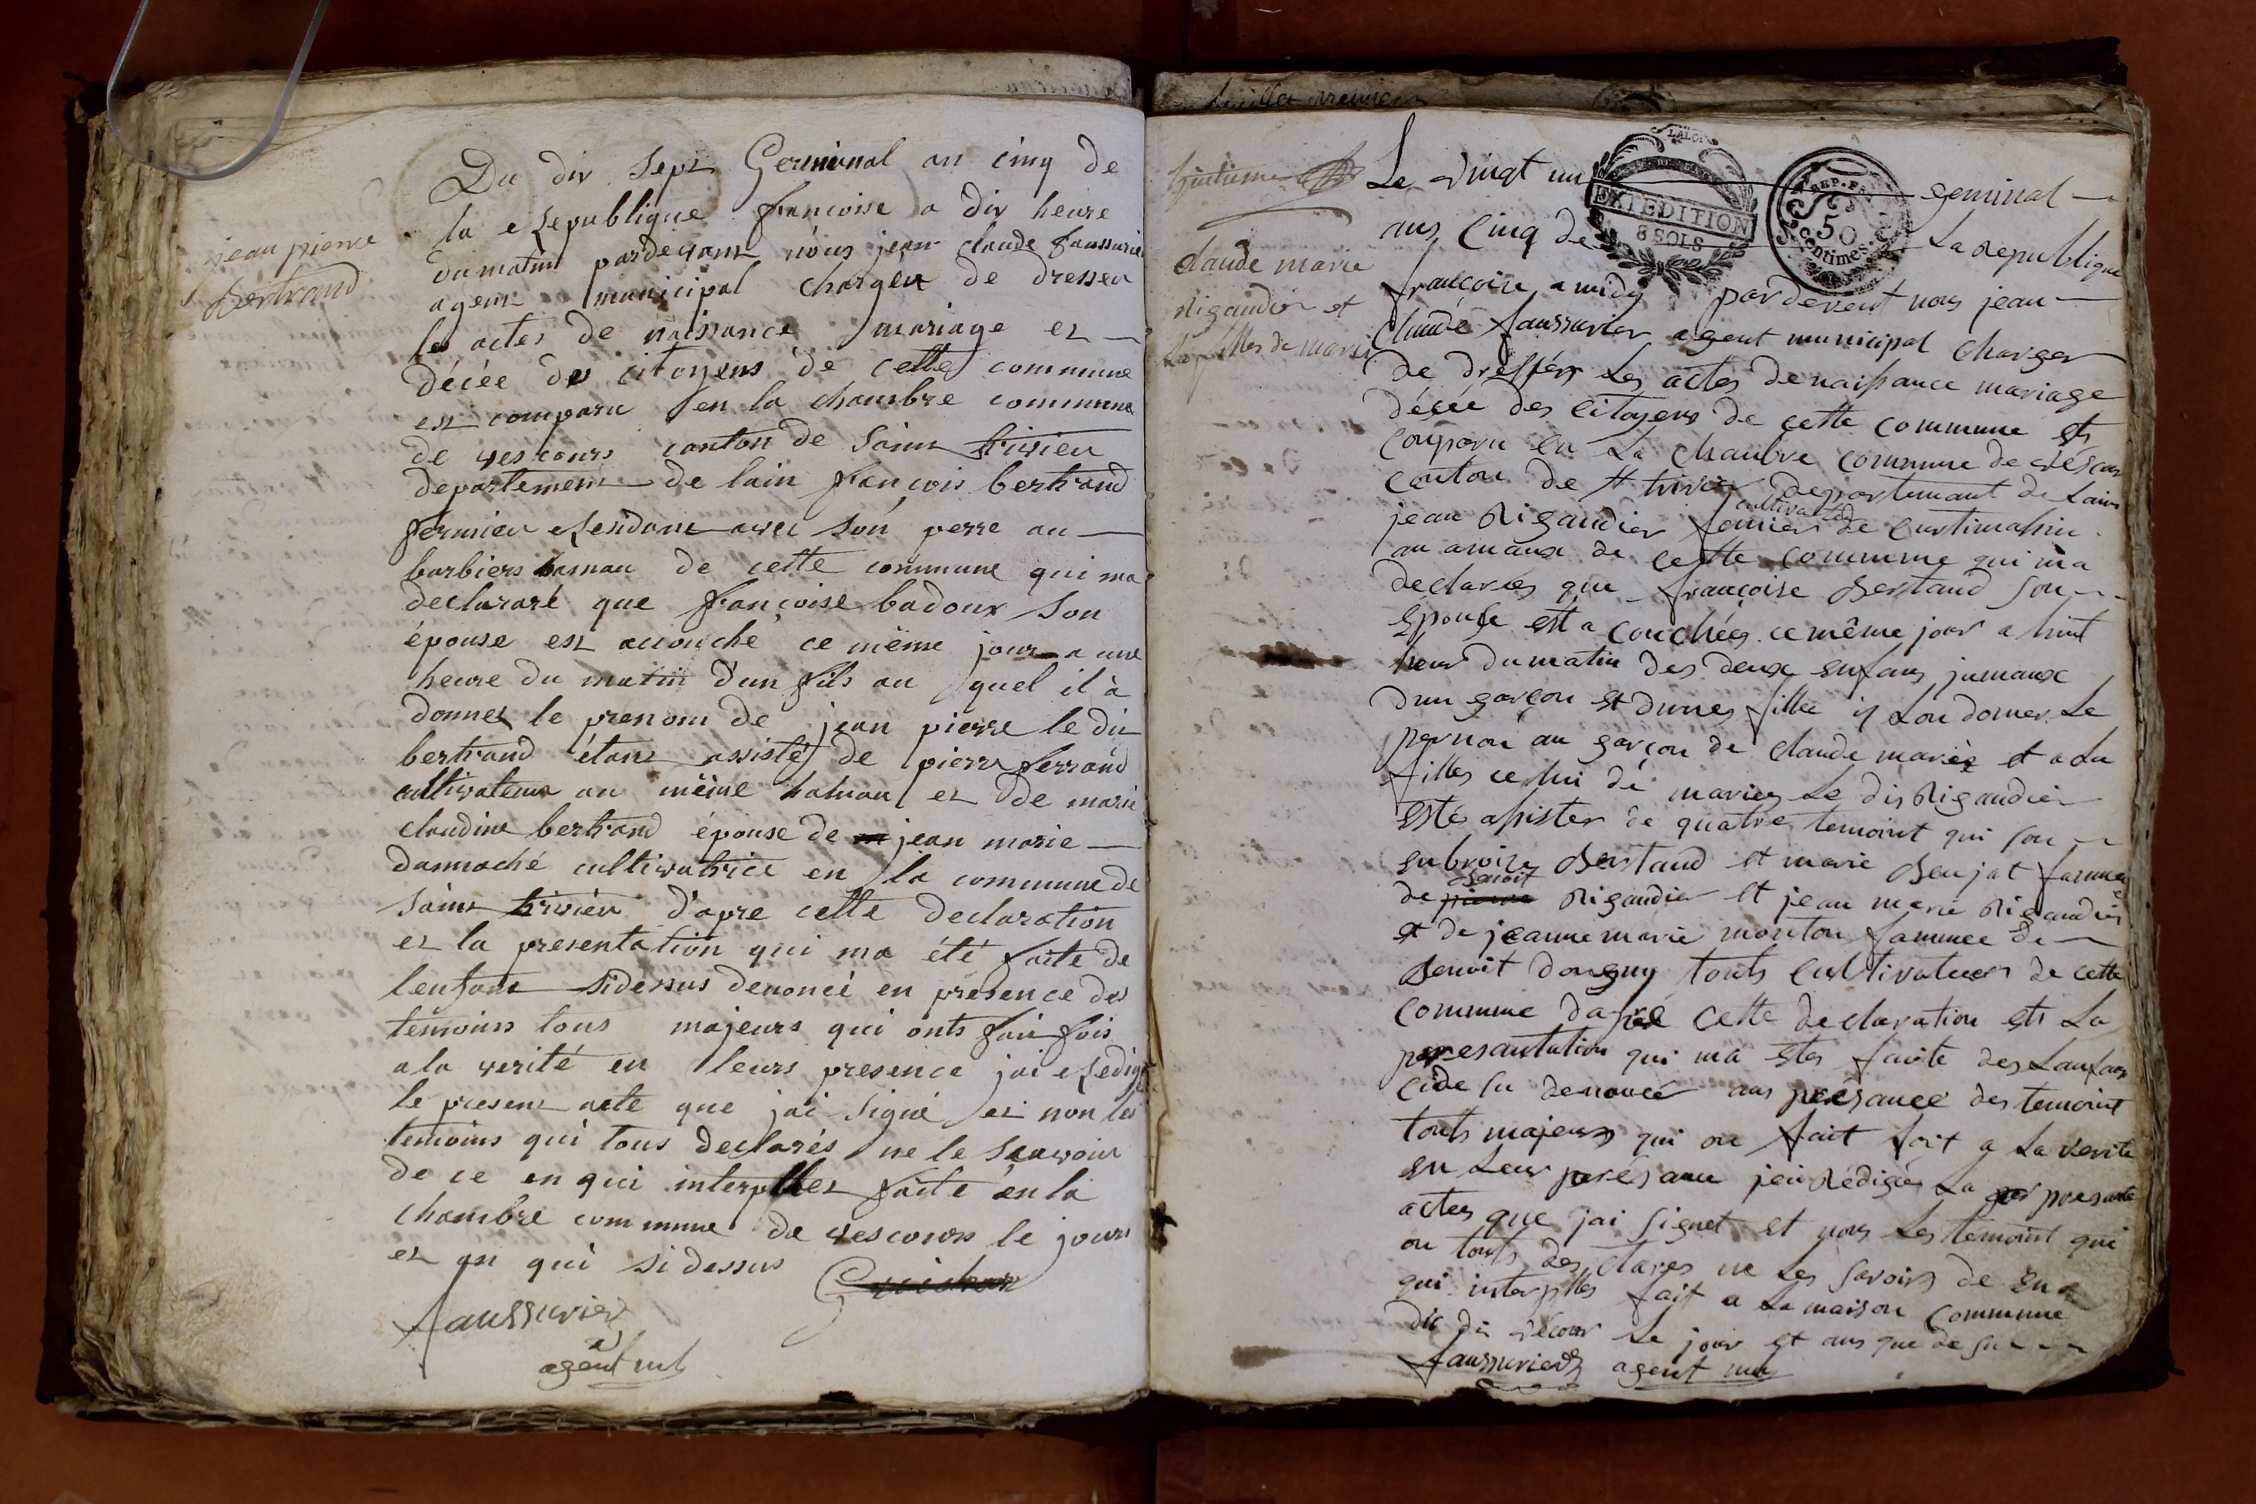 jean pierre
Bertrand
Du dix Sept Germinal an cinq de
la Republique francoise a dix heure
du matin pardevant nous jean claude faussurier
agent municipal charger de dresser
les actes de naissance mariage et
décée des citoyens de cette commune
est comparu en la chambre commune
de vescours canton de Saint trivier
departement de lain françois bertrand
fermier Residant avec Son perre au
barbiers hamau de cette commune qui ma
declararé que françoise badoux Son
épouse est accouché ce même jour a une
heure du matin d'un fils au quel il à
donner le prenom de jean pierre le dit
bertrand étant assisté de pierre ferrand
cultivateur au même hamau et de marie
claudine bertrand épouse de jean marie
dannaché cultivatrice en la commune de
Saint trivier d'apre cette declaration
et la presentation qui ma été faite de
lenfant sidessus denoncé en présence des
temoins tous majeurs qui onts fait fois
a la verité en leurs presence jai Redigé
le present acte que jai Signé et non les
temoins qui tous declarés ne le Scavoir
de ce en qui interpller faite en la
chambre commune de vescours le jours
et an qui sidessus
faussurier
agent ml
feuillet
huitieme
claude marie
Rigaudier et
la filles de marie
LA LOI
EXPEDITION
8 SOLS
REP. FR.
50
centimes
Le vingt un geminal
ans Cinq de La Republique
francoise a midy pardevent nous jean
Claude faussurier agent municipal charger
de dressér Les actes de naissance mariage
décée des Citoyens de cette commune est
conparu en La chanbre commune de véscour
canton de st trivier departemant de Lain
cultivateur
jean Rigaudier femier de Curtimalin
au amaux de cette commune qui ma
declarées que francoise Berstand Son
Epouse est a couchées ce même jour a huit
heur du matin des deux enfans jumaux
dun garçon et dunes fillee il Lon donner Le
pernon au garçon de claude mariee et a La
filles celui de mariee Le dis Rigaudier
esté asister de quatre temoint qui son
anbroize Berstand et marie Beujat famme
Benoit
de pierre Rigaudier et jean marie Rigaudier
et de jeanne marie monton fammee de
Benoit donguy touts Cultivateurs de cette
commune daprée cette declaration est La
peresantation qui ma etes faiite des Lanfans
cide su denoncér ans peresance des temoint
touts majeurs qui on fait foit a La verite
en Leur peresance jeai Rédigée La presante
actes que jai signet et nons Les temoint qui
on touts des clares ne Les savoirs de en ce
qui interpilles fait a La maison Commune
dit de vécour Le jour et ans que de su
faussurier agent ml